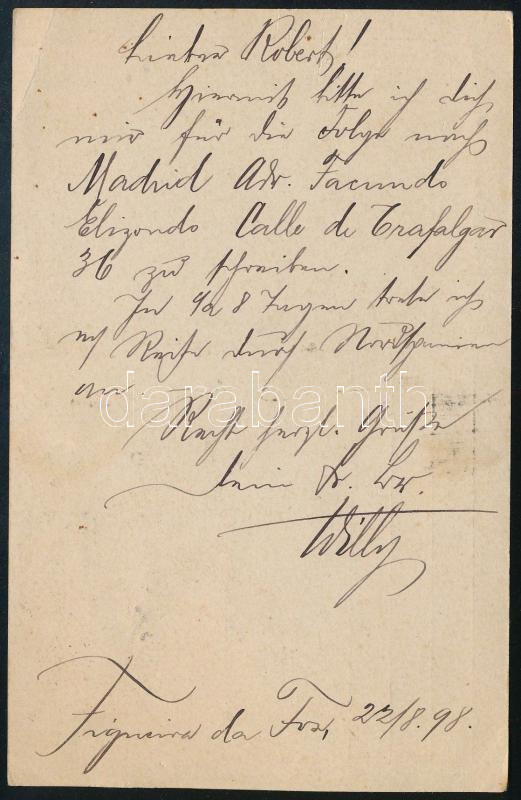 Lieber Robert!
Hiermit bitte ich dich
mir für die Folge nach
Madrid Adr. Facundo
Elizondo Calle de Trafalgar
36 zu schreiben.
In ca 8 Tagen trete ich
m/ Reise durch Nordspanien
an.
darabanth
Recht herzl. Grüße
dein tr. Br.
Willy
Figueira da Foz, 22/8.98.